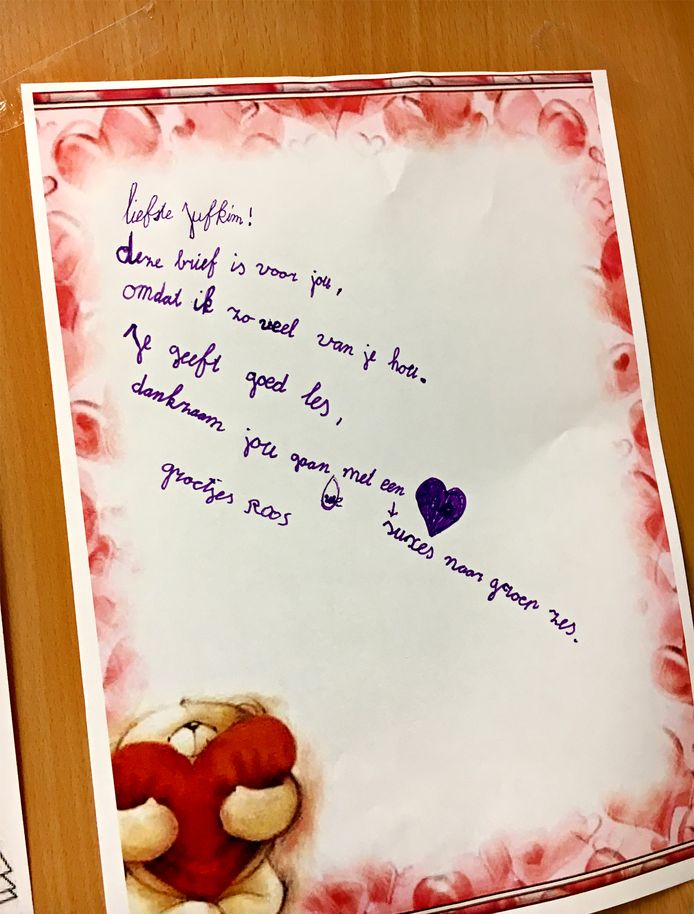 liefste Jufkim!
deze brief is voor jou,
omdat ik zo veel van je hou.
Je geeft goed les,
dankzaam jou gaan we met een ↓ suxes naar groep zes.
groetjes ROOS